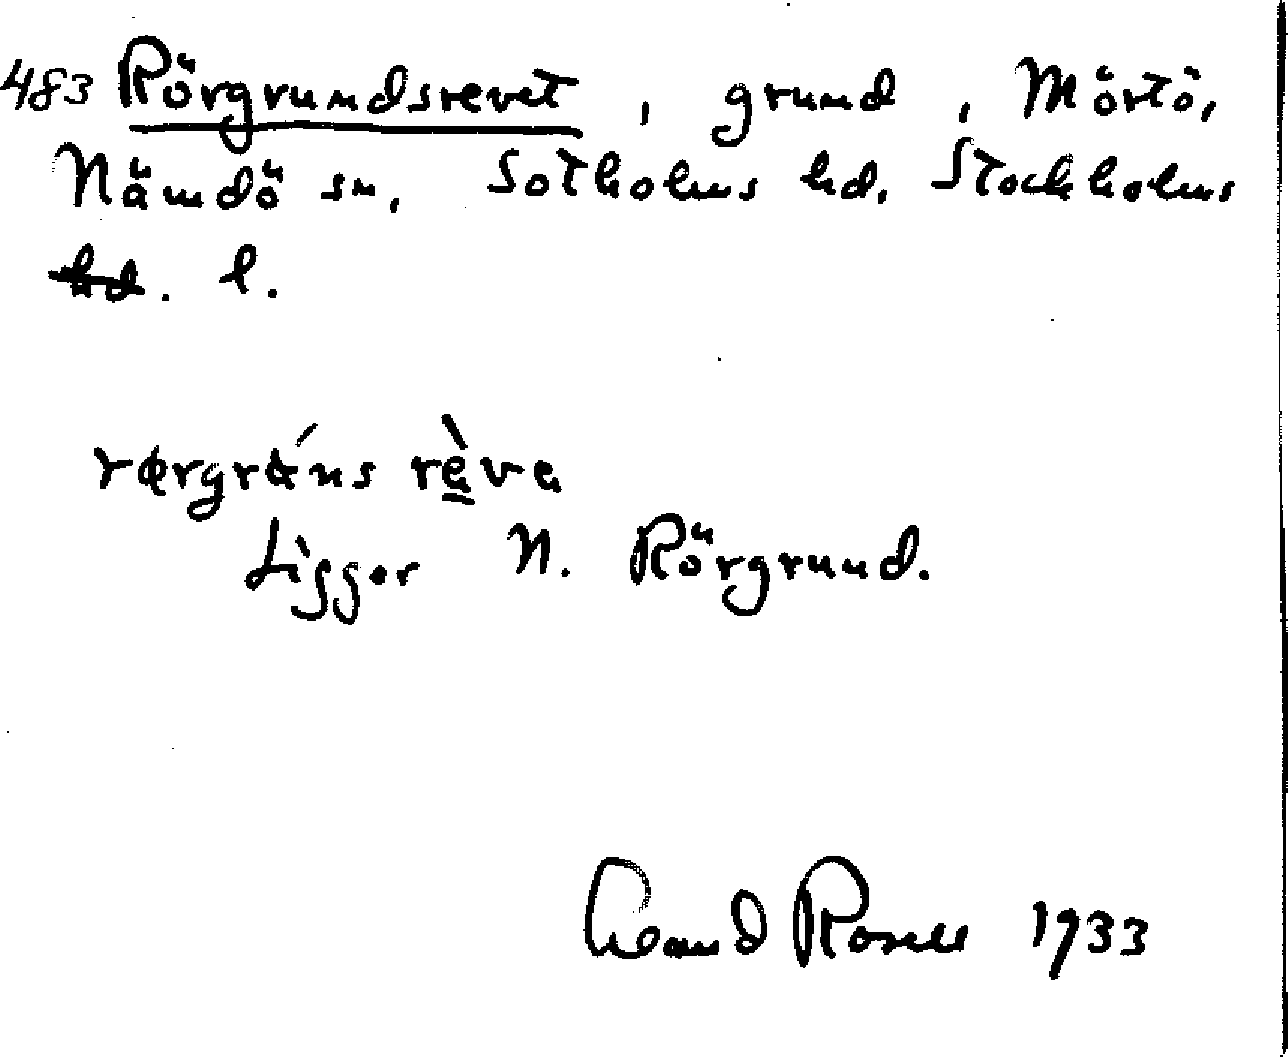 483 Rörgrundsrevet, grund, Mörtö,
Nämdö sn, Sotholms hd. Stockholms
hd. l.
rørgrv́ns rèva
Ligger N. Rörgrund.
Rosell 1933